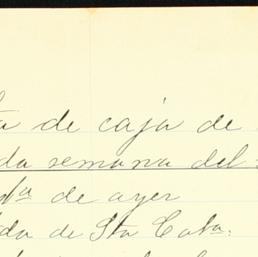 de caja de
da semana del
de ayer
da de Sta Cata.